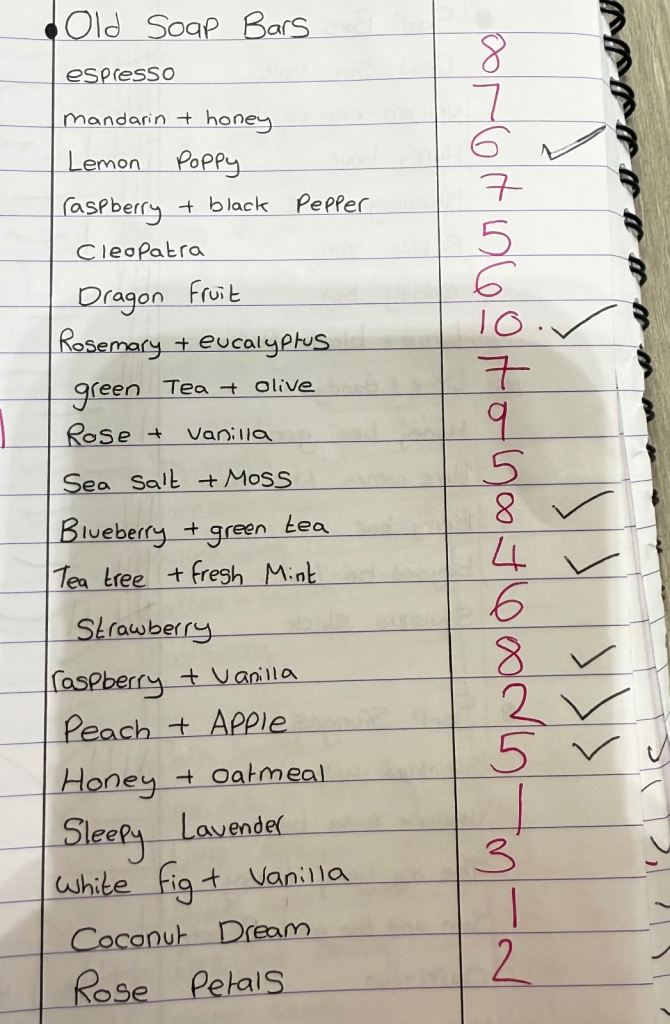 • Old Soap Bars
espresso 8
mandarin + honey 7
Lemon Poppy 6 ✓
raspberry + black Pepper 7
Cleopatra 5
Dragon fruit 6
Rosemary + eucalyptus 10. ✓
green Tea + olive 7
Rose + vanilla 9
Sea salt + Moss 5
Blueberry + green tea 8 ✓
Tea tree + fresh Mint 4 ✓
Strawberry 6
raspberry + vanilla 8 ✓
Peach + APPle 2 ✓
Honey + oatmeal 5 ✓
Sleepy Lavender 1
White fig + Vanilla 3
Coconut Dream 1
Rose Petals 2